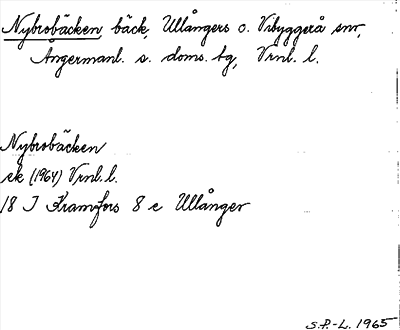 Nybrobäcken, bäck, Ullångers o. Vibyggerå snr,
Ångermanl. s. doms. tg, Vrnl. l.
Nybrobäcken
ek (1964) Vrnl. l.
18 I Kramfors 8 e Ullånger
S.P.-L. 1965